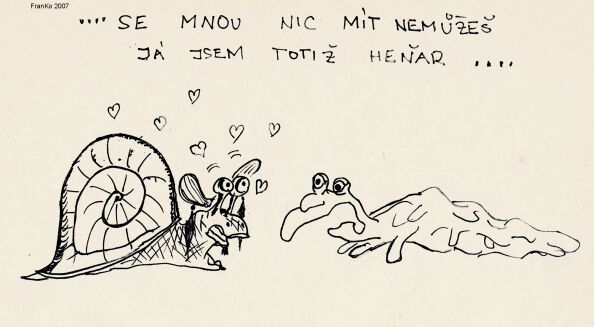 FranKo 2007
.... SE MNOU NIC MÍT NEMŮŽEŠ
JÁ JSEM TOTIŽ HEŇAR ....